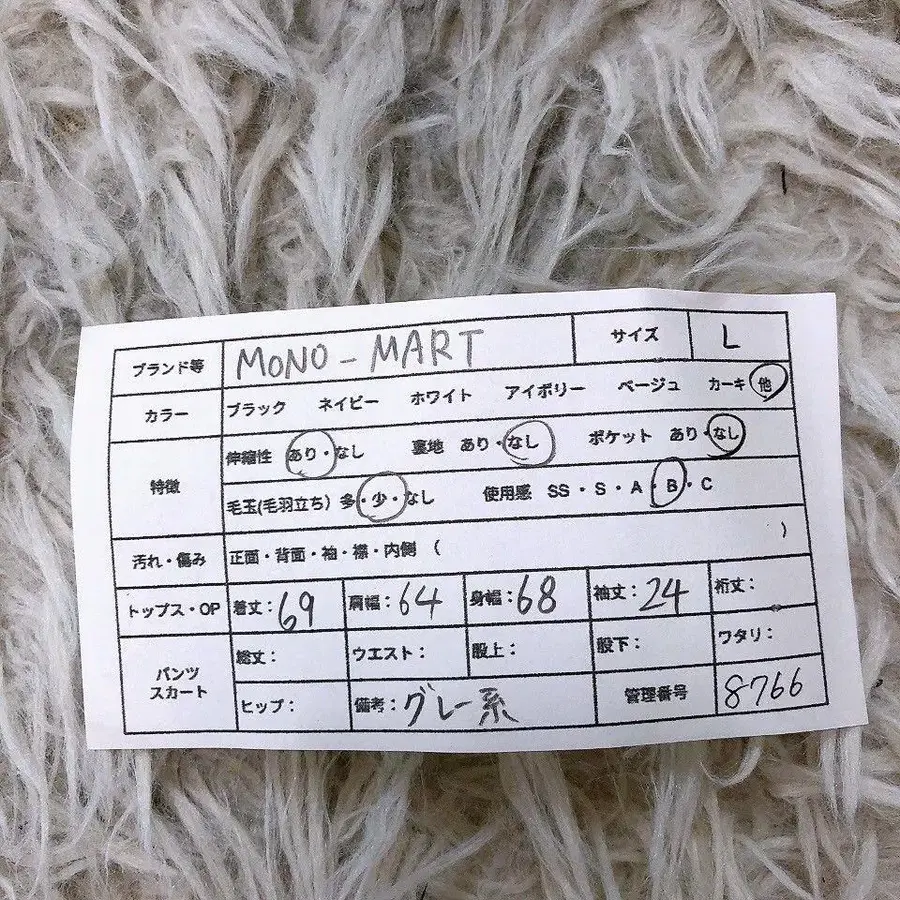 ブランド等 MONO-MART サイズ L
カラー ブラック ネイビー ホワイト アイボリー ベージュ カーキ 他
特徴 伸縮性 あり・なし 裏地 あり・なし ポケット あり・なし
毛玉(毛羽立ち) 多・少・なし 使用感 SS・S・A・B・C
汚れ・傷み 正面・背面・袖・襟・内側 ( )
トップス・OP 着丈：69 肩幅：64 身幅：68 袖丈：24 裄丈：
パンツ スカート 総丈： ウエスト： 股上： 股下： ワタリ：
ヒップ： 備考：グレー系 管理番号 8766